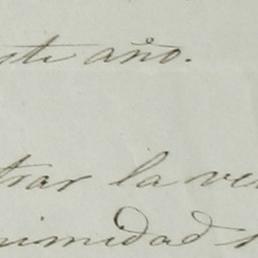 este año.
trar la ver
nimidad